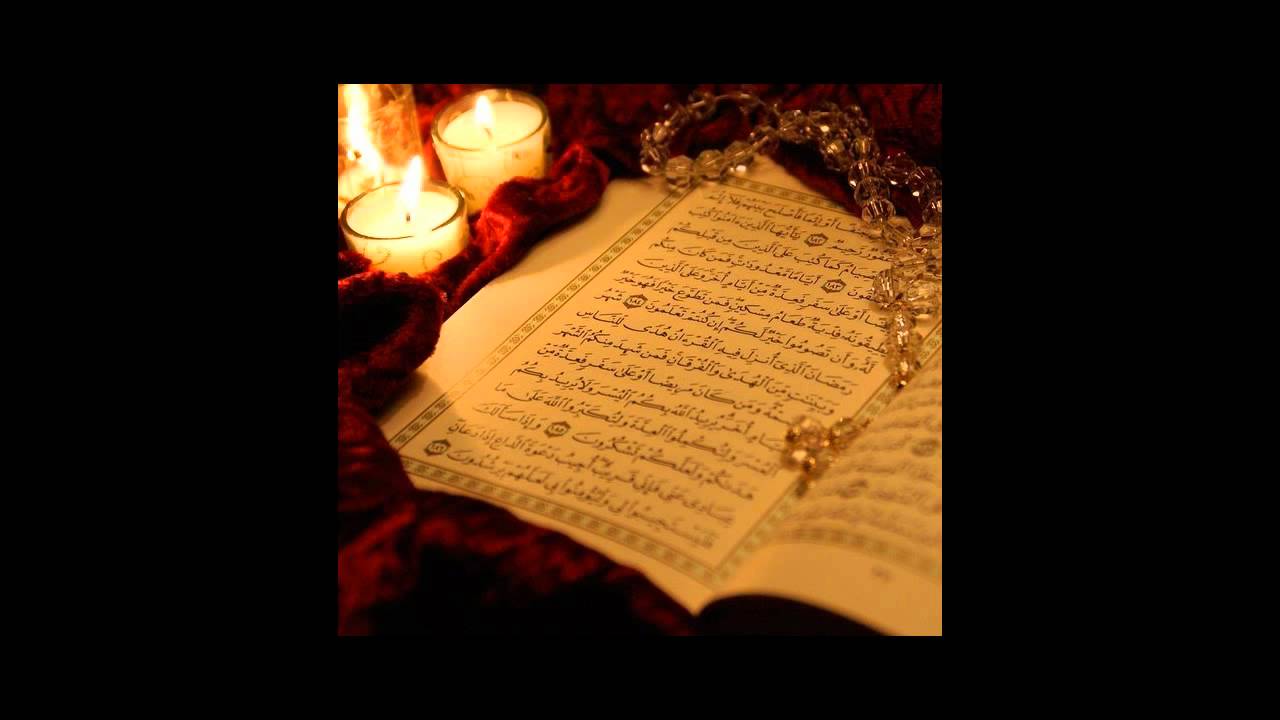 أَوْ إِثْمًا فَأَصْلَحَ بَيْنَهُمْ فَلَآ إِثْمَ
رَّحِيمٌ ١٨٢ يَٰٓأَيُّهَا ٱلَّذِينَ ءَامَنُوا۟ كُتِبَ
كَمَا كُتِبَ عَلَى ٱلَّذِينَ مِن قَبْلِكُمْ
١٨٣ أَيَّامًا مَّعْدُودَٰتٍ فَمَن كَانَ مِنكُم
أَوْ عَلَىٰ سَفَرٍ فَعِدَّةٌ مِّنْ أَيَّامٍ أُخَرَ وَعَلَى ٱلَّذِينَ
يُطِيقُونَهُۥ فِدْيَةٌ طَعَامُ مِسْكِينٍ فَمَن تَطَوَّعَ خَيْرًا فَهُوَ خَيْرٌ
لَّهُۥ وَأَن تَصُومُوا۟ خَيْرٌ لَّكُمْ إِن كُنتُمْ تَعْلَمُونَ ١٨٤ شَهْرُ
رَمَضَانَ ٱلَّذِىٓ أُنزِلَ فِيهِ ٱلْقُرْءَانُ هُدًى لِّلنَّاسِ
وَبَيِّنَٰتٍ مِّنَ ٱلْهُدَىٰ وَٱلْفُرْقَانِ فَمَن شَهِدَ مِنكُمُ ٱلشَّهْرَ
وَمَن كَانَ مَرِيضًا أَوْ عَلَىٰ سَفَرٍ فَعِدَّةٌ مِّنْ
أُخَرَ يُرِيدُ ٱللَّهُ بِكُمُ ٱلْيُسْرَ وَلَا يُرِيدُ بِكُمُ
ٱلْعُسْرَ وَلِتُكْمِلُوا۟ ٱلْعِدَّةَ وَلِتُكَبِّرُوا۟ ٱللَّهَ عَلَىٰ مَا
هَدَىٰكُمْ وَلَعَلَّكُمْ تَشْكُرُونَ ١٨٥ وَإِذَا سَأَلَكَ
عِبَادِى عَنِّى فَإِنِّى قَرِيبٌ أُجِيبُ دَعْوَةَ ٱلدَّاعِ إِذَا دَعَانِ
فَلْيَسْتَجِيبُوا۟ لِى وَلْيُؤْمِنُوا۟ بِى لَعَلَّهُمْ يَرْشُدُونَ ١٨٦